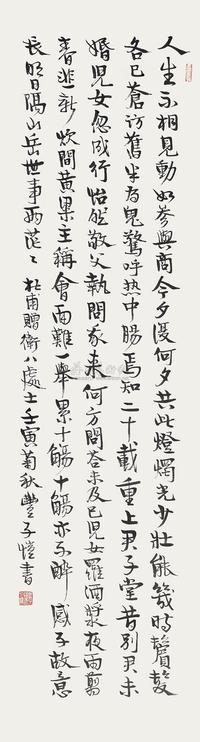 人生不相見動如參與商今夕復何夕共此燈燭光少壯能幾時鬢髮
各已蒼訪舊半為鬼驚呼热中腸焉知二十載重上君子堂昔別君未
婚兒女忽成行怡然敬父執問我來何方問答未及已兒女羅酒漿夜雨剪
春韭新炊間黃粱主稱會面難一舉累十觴十觴亦不醉感子故意
長明日隔山岳世事兩茫〻 杜甫贈衛八處士壬寅菊秋豐子愷書